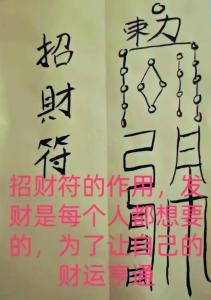 招財符
勅
招财符的作用，发
财是每个人都想要
的，为了让自己的
财运亨通